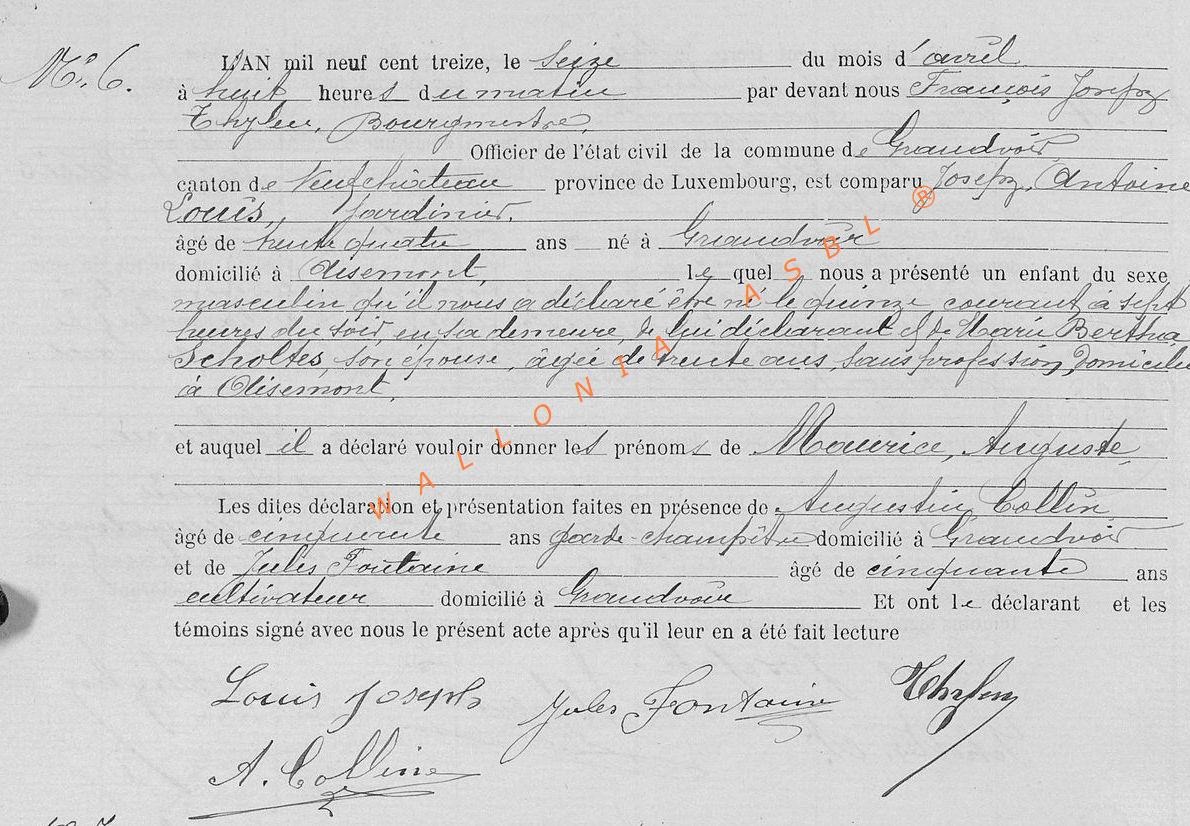 N° 6.
L'AN mil neuf cent treize, le seize du mois d'avril
à huit heures du matin par devant nous François Joseph
Thylen, Bourgmestre,
Officier de l'état civil de la commune de Grandvoir
canton de Neufchâteau province de Luxembourg, est comparu Joseph, Antoine
Louis, Jardinier,
âgé de trente quatre ans né à Grandvoir
domicilié à Olisemont, lequel nous a présenté un enfant du sexe
masculin qu'il nous a déclaré être né le quinze courant, à sept
heures du soir, en sa demeure, de lui déclarant et de Marie Bertha
Scholtes, son épouse, âgée de trente ans, sans profession, domiciliée
à Olisemont,
et auquel il a déclaré vouloir donner les prénoms de Maurice, Auguste,
Les dites déclaration et présentation faites en présence de Augustin Collin
âgé de cinquante ans garde-champêtre domicilié à Grandvoir
et de Jules Fontaine âgé de cinquante ans
cultivateur domicilié à Grandvoir Et ont le déclarant et les
témoins signé avec nous le présent acte après qu'il leur en a été fait lecture
Louis Joseph Jules Fontaine Thylen
A. Colline
WALLONIA ASBL ®